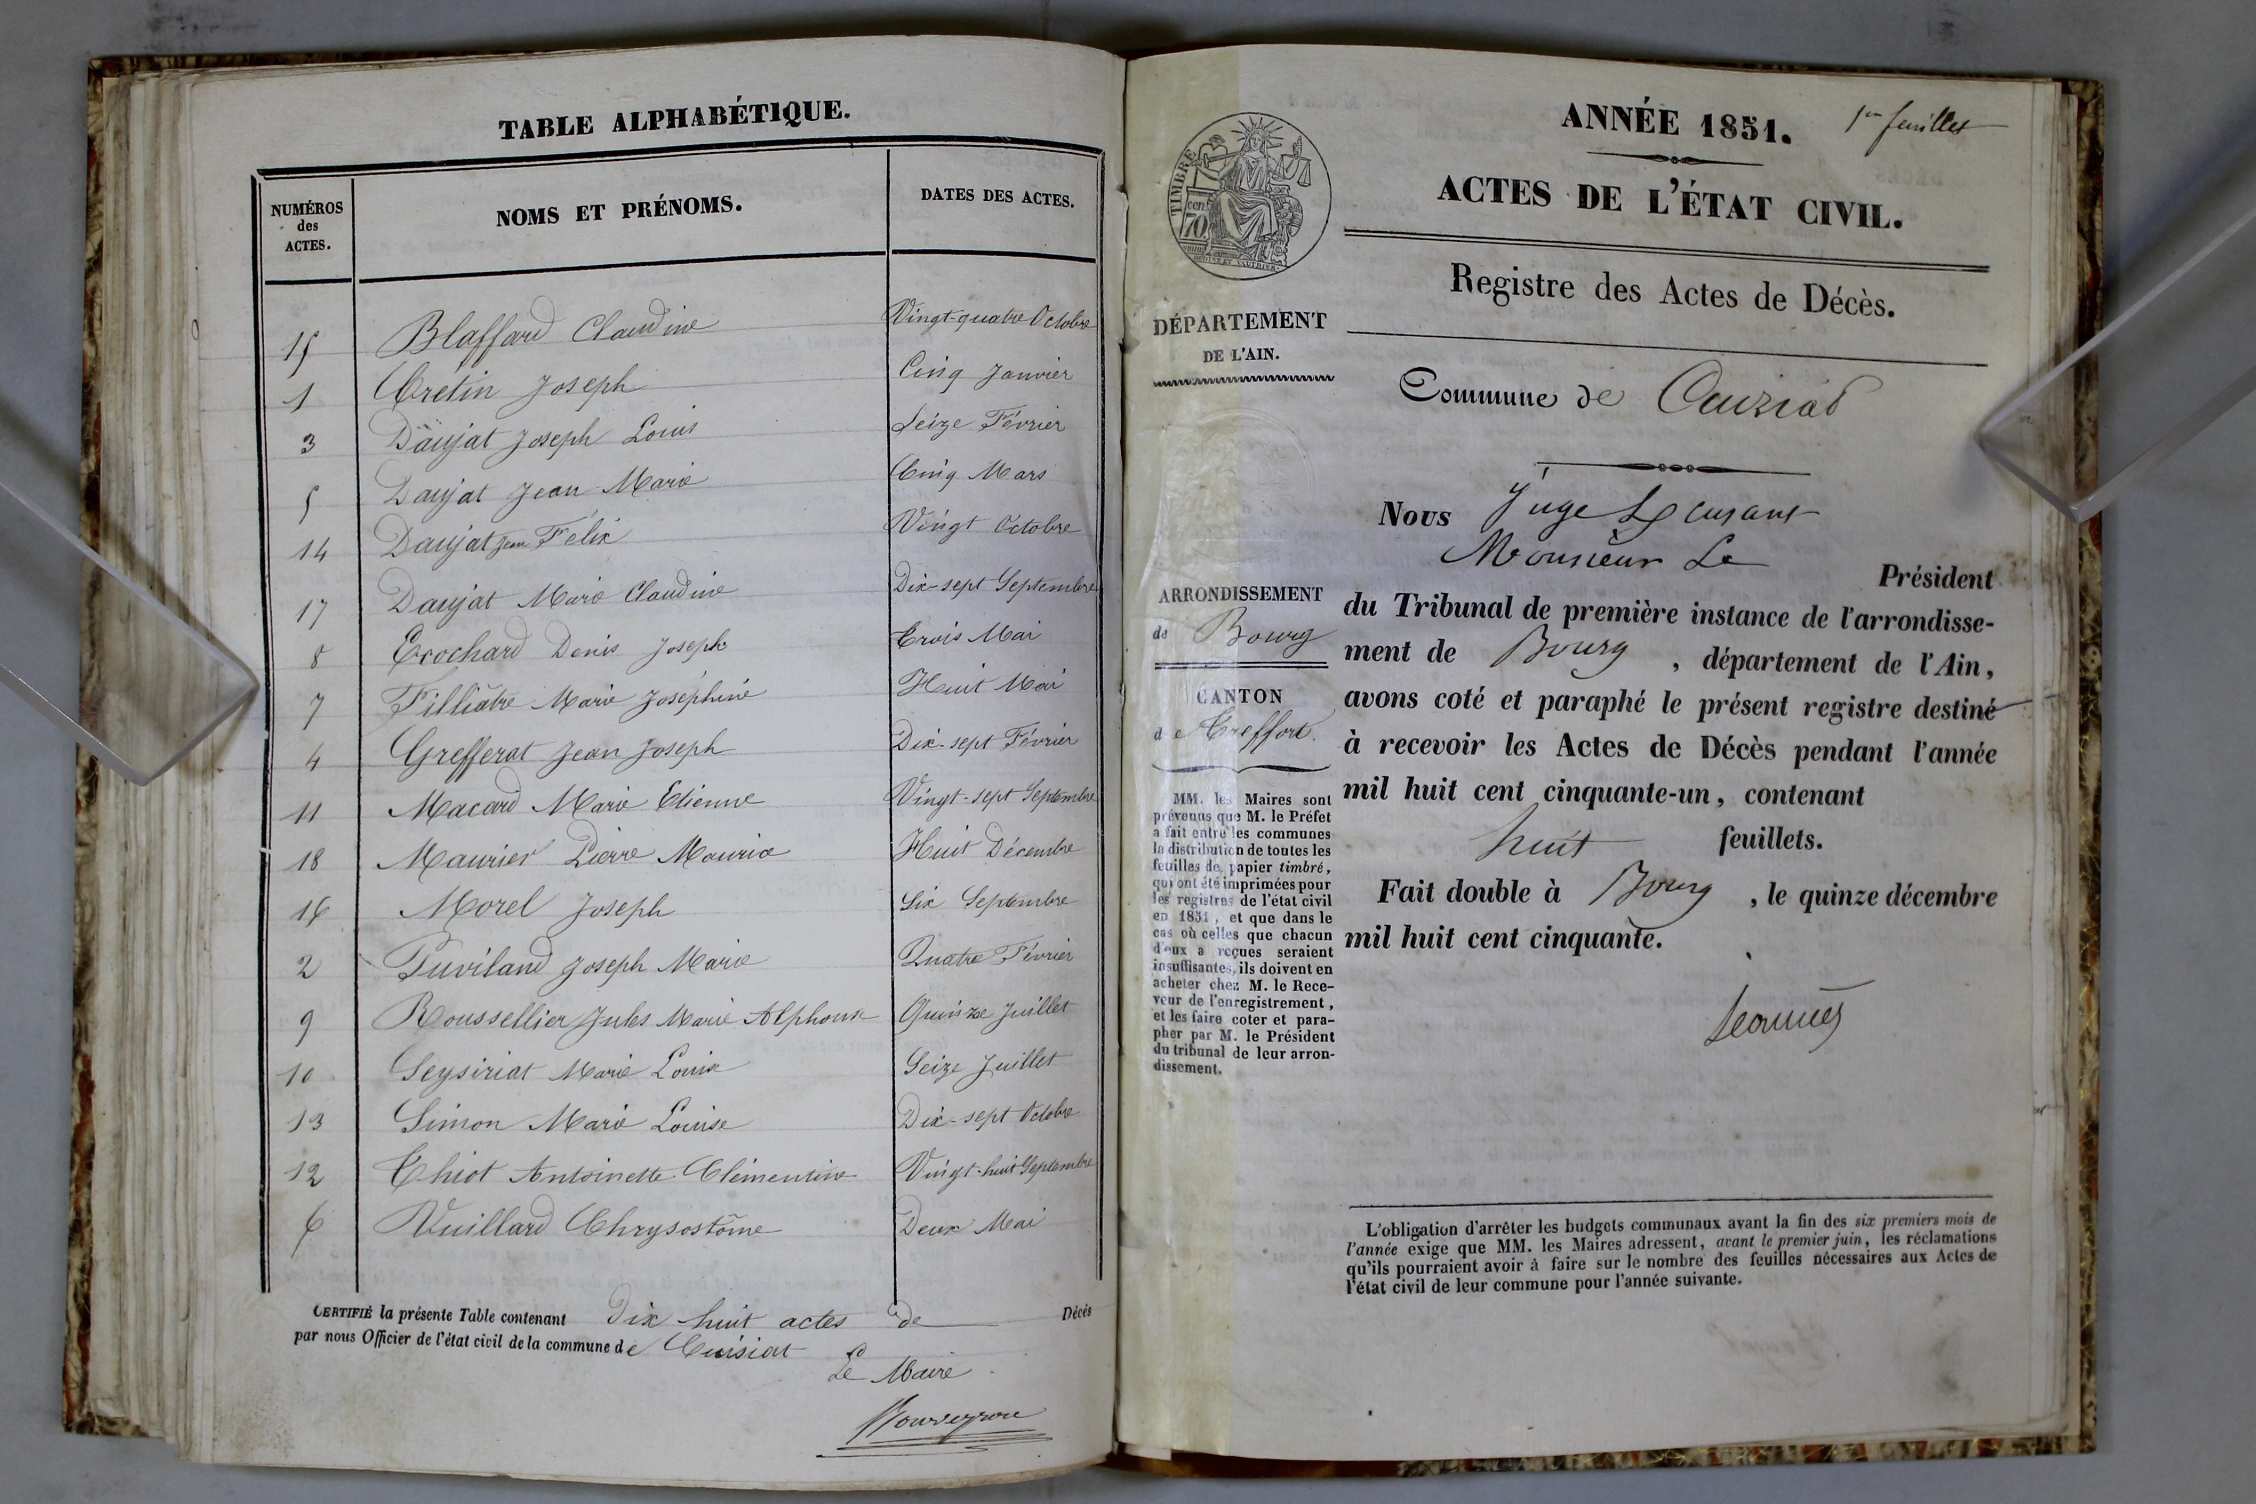 TABLE ALPHABÉTIQUE.
NUMÉROS des ACTES.
NOMS ET PRÉNOMS.
DATES DES ACTES.
15 Blaffard Claudine Vingt-quatre Octobre
1 Cretin Joseph Cinq Janvier
3 Daujat Joseph Louis Seize Février
5 Daujat Jean Marie Cinq Mars
14 Daujat Jean Félix Vingt Octobre
17 Daujat Marie Claudine Dix-sept Septembre
8 Erochard Denis Joseph Trois Mai
7 Filliâtre Marie Joséphine Huit Mai
4 Grefferat Jean Joseph Dix-sept Février
11 Macard Marie Etienne Vingt-sept Septembre
18 Maurier Pierre Marie Huit Décembre
16 Morel Joseph Six Septembre
2 Puviland Joseph Marie Quatre Février
9 Roussellier Jules Marie Alphonse Quinze Juillet
10 Seysiriat Marie Louise Seize Juillet
13 Simon Marie Louise Dix-sept Octobre
12 Thiot Antoinette Clémentine Vingt-huit Septembre
6 Vuillard Chrysostôme Deux Mai
CERTIFIÉ la présente Table contenant Dix huit actes de Décès
par nous Officier de l'état civil de la commune de Cuisiat
Le Maire
ANNÉE 1851.
1er feuillet
ACTES DE L'ÉTAT CIVIL.
Registre des Actes de Décès.
TIMBRE
70 cent
DÉPARTEMENT
DE L'AIN.
Commune de Cuiziat
ARRONDISSEMENT
de Bourg
CANTON
de Treffort.
MM. les Maires sont
prévenus que M. le Préfet
a fait entre les communes
la distribution de toutes les
feuilles de papier timbré,
qui ont été imprimées pour
les registres de l'état civil
en 1851, et que dans le
cas où celles que chacun
d'eux a reçues seraient
insuffisantes, ils doivent en
acheter chez M. le Rece-
veur de l'enregistrement,
et les faire coter et para-
pher par M. le Président
du tribunal de leur arron-
dissement.
Nous Juge
Monsieur Le Président
du Tribunal de première instance de l'arrondisse-
ment de Bourg, département de l'Ain,
avons coté et paraphé le présent registre destiné
à recevoir les Actes de Décès pendant l'année
mil huit cent cinquante-un, contenant
huit feuillets.
Fait double à Bourg, le quinze décembre
mil huit cent cinquante.
L'obligation d'arrêter les budgets communaux avant la fin des six premiers mois de
l'année exige que MM. les Maires adressent, avant le premier juin, les réclamations
qu'ils pourraient avoir à faire sur le nombre des feuilles nécessaires aux Actes de
l'état civil de leur commune pour l'année suivante.